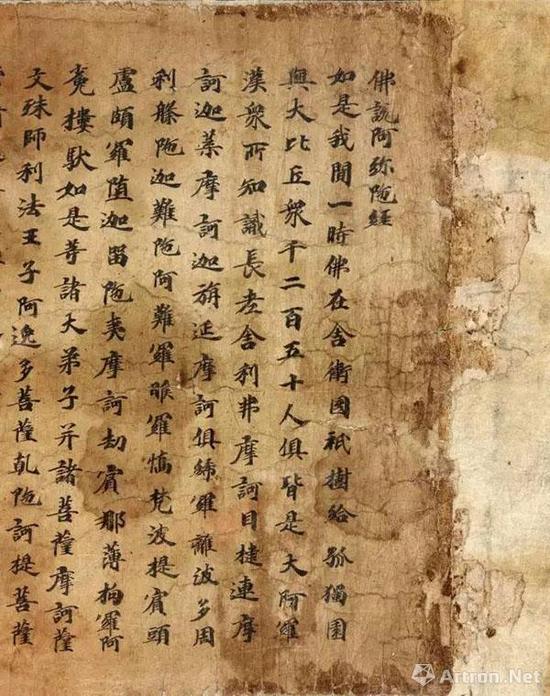 佛說阿弥陁經
如是我聞一時佛在舍衛國祇樹給孤獨園
與大比丘衆千二百五十人俱皆是大阿羅
漢衆所知識長老舍利弗摩訶目揵連摩
訶迦葉摩訶迦旃延摩訶俱絺羅離波多周
利槃陁迦難陁阿難羅睺羅憍梵波提賓頭
盧頗羅堕迦留陁夷摩訶劫賓那薄拘羅阿
㝹樓馱如是等諸大弟子并諸菩薩摩訶薩
文殊師利法王子阿逸多菩薩乾陁訶提菩薩
Artron.Net